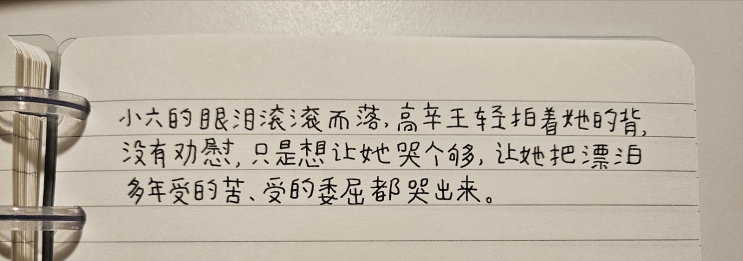 小六的眼泪滚滚而落,高辛王轻拍着她的背,
没有劝慰,只是想让她哭个够,让她把漂泊
多年受的苦、受的委屈都哭出来。